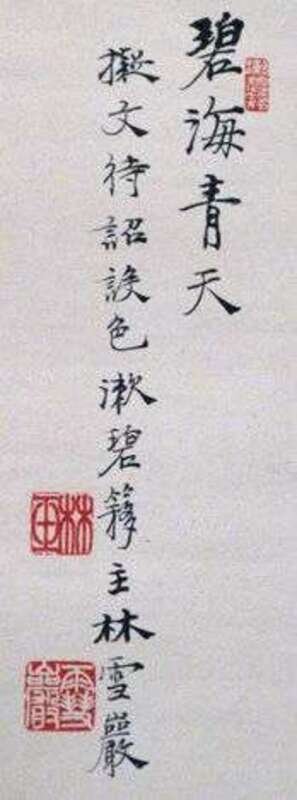 碧海青天
擬文待詔設色漱碧簃主林雪巖
雪巖